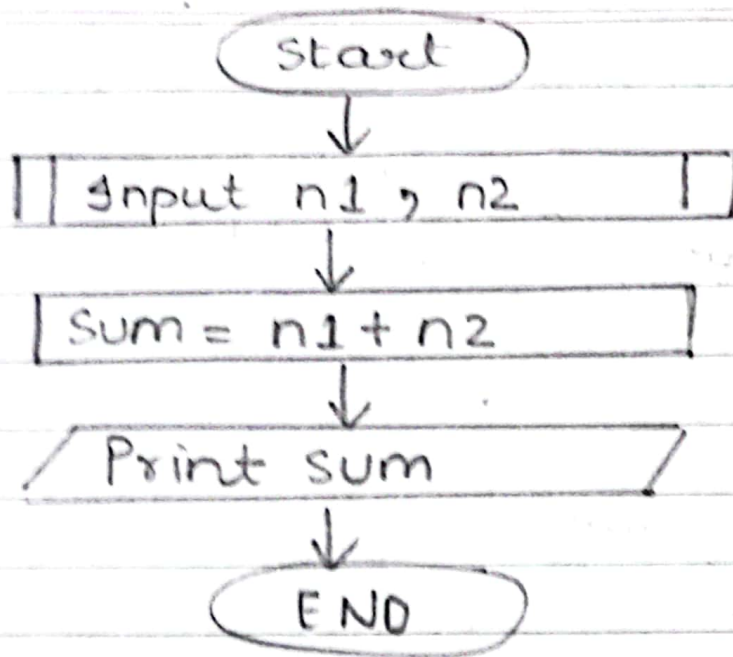 Start
Input n1, n2
Sum = n1 + n2
Print sum
END